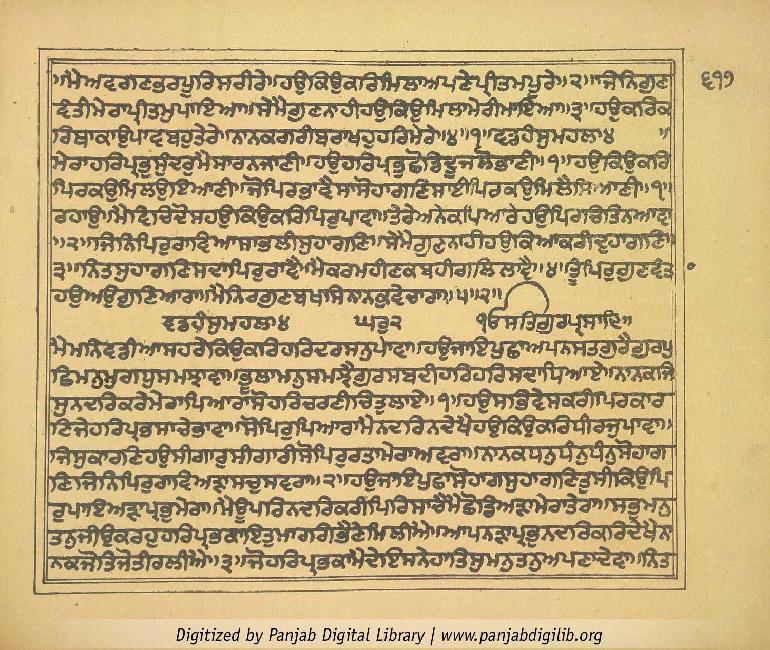 ੬੧੭
॥ਮੈਅਵਗਣਭਰਪੂਰਿਸਰੀਰੇ॥ਹਉਕਿਉਕਰਿਮਿਲਾਅਪਣੇਪ੍ਰੀਤਮਪੂਰੇ॥੨॥ਜਿਨਿਗੁਣ
ਵੰਤੀਮੇਰਾਪ੍ਰੀਤਮੁਪਾਇਆ॥ਸੇਮੈਗੁਣਨਾਹੀਹਉਕਿਉਮਿਲਾਮੇਰੀਮਾਇਆ॥੩॥ਹਉਕਰਿਕ
ਰਿਥਾਕਾਉਪਾਵਬਹੁਤੇਰੇ॥ਨਾਨਕਗਰੀਬਰਾਖਹੁਹਰਿਮੇਰੇ॥੪॥੧॥ਵਡਹੰਸੁਮਹਲਾ੪॥
ਮੇਰਾਹਰਿਪ੍ਰਭੁਸੁੰਦਰੁਮੈਸਾਰਨਜਾਣੀ॥ਹਉਹਰਿਪ੍ਰਭਛੋਡਿਦੂਜੈਲੋਭਾਣੀ॥੧॥ਹਉਕਿਉਕਰਿ
ਪਿਰਕਉਮਿਲਉਇਆਣੀ॥ਜੋਪਿਰਭਾਵੈਸਾਸੋਹਾਗਣਿਸਾਈਪਿਰਕਉਮਿਲੈਸਿਆਣੀ॥੧॥
ਰਹਾਉ॥ਮੈਵਿਚਿਦੋਸਹਉਕਿਉਕਰਿਪਿਰੁਪਾਵਾ॥ਤੇਰੇਅਨੇਕਪਿਆਰੇਹਉਪਿਰਚਿਤਿਨਆਵਾ
॥੨॥ਜਿਨਿਪਿਰੁਰਾਵਿਆਸਾਭਲੀਸੁਹਾਗਣਿ॥ਸੇਮੈਗੁਣਨਾਹੀਹਉਕਿਆਕਰੀਦੁਹਾਗਣਿ॥
੩॥ਨਿਤਸੁਹਾਗਣਿਸਦਾਪਿਰੁਰਾਵੈ॥ਮੈਕਰਮਹੀਣਕਬਹੀਗਲਿਲਾਵੈ॥੪॥ਤੂਪਿਰੁਗੁਣਵੰਤਾ
ਹਉਅਉਗੁਣਿਆਰਾ॥ਮੈਨਿਰਗੁਣਬਖਸਿਨਾਨਕੁਵੇਚਾਰਾ॥੫॥੨॥
ਵਡਹੰਸੁਮਹਲਾ੪ ਘਰੁ੨ ੴਸਤਿਗੁਰਪ੍ਰਸਾਦਿ॥
ਮੈਮਨਿਵਡੀਆਸਹਰੇਕਿਉਕਰਿਹਰਿਦਰਸਨੁਪਾਵਾ॥ਹਉਜਾਇਪੁਛਾਅਪਨੇਸਤਗੁਰੈਗੁਰਪੁ
ਛਿਮਨੁਮੁਗਧੁਸਮਝਾਵਾ॥ਭੂਲਾਮਨੁਸਮਝੈਗੁਰਸਬਦੀਹਰਿਹਰਿਸਦਾਧਿਆਏ॥ਨਾਨਕਜਿ
ਸੁਨਦਰਿਕਰੇਮੇਰਾਪਿਆਰਾਸੋਹਰਿਚਰਣੀਚਿਤੁਲਾਏ॥੧॥ਹਉਸਭਿਵੇਸਕਰੀਪਿਰਕਾਰ
ਣਿਜੇਹਰਿਪ੍ਰਭਸਾਚੇਭਾਵਾ॥ਸੋਪਿਰੁਪਿਆਰਾਮੈਨਦਰਿਨਦੇਖੈਹਉਕਿਉਕਰਿਧੀਰਜੁਪਾਵਾ॥
ਜਿਸੁਕਾਰਣਿਹਉਸੀਗਾਰੁਸੀਗਾਰੀਸੋਪਿਰੁਰਤਾਮੇਰਾਅਵਰਾ॥ਨਾਨਕਧਨੁਧੰਨੁਧੰਨੁਸੋਹਾਗ
ਣਿਜਿਨਿਪਿਰੁਰਾਵਿਅੜਾਸਚੁਸਵਰਾ॥੨॥ਹਉਜਾਇਪੁਛਾਸੋਹਾਗਸੁਹਾਗਣਿਤੁਸੀਕਿਉਪਿ
ਰੁਪਾਇਅੜਾਪ੍ਰਭੁਮੇਰਾ॥ਮੈਊਪਰਿਨਦਰਿਕਰੀਪਿਰਿਸਾਚੈਮੈਛੋਡਿਅੜਾਮੇਰਾਤੇਰਾ॥ਸਭੁਮਨੁ
ਤਨੁਜੀਉਕਰਹੁਹਰਿਪ੍ਰਭਕਾਇਤੁਮਾਰਗਿਭੈਣੇਮਿਲੀਐ॥ਆਪਨੜਾਪ੍ਰਭੁਨਦਰਿਕਰਿਦੇਖੈਨਾ
ਨਕਜੋਤਿਜੋਤੀਰਲੀਐ॥੩॥ਜੋਹਰਿਪ੍ਰਭਕਾਮੈਦੇਇਸਨੇਹਾਤਿਸੁਮਨੁਤਨੁਅਪਣਾਦੇਵਾ॥ਨਿਤ
Digitized by Panjab Digital Library | www.panjabdigilib.org